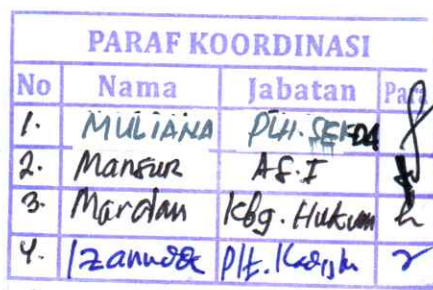 PARAF KOORDINASI
No Nama Jabatan Para
1. MULIANA PLH. SEKDA
2. Mansur AS. I
3. Mardan Kbg. Hukum
4. Plt.